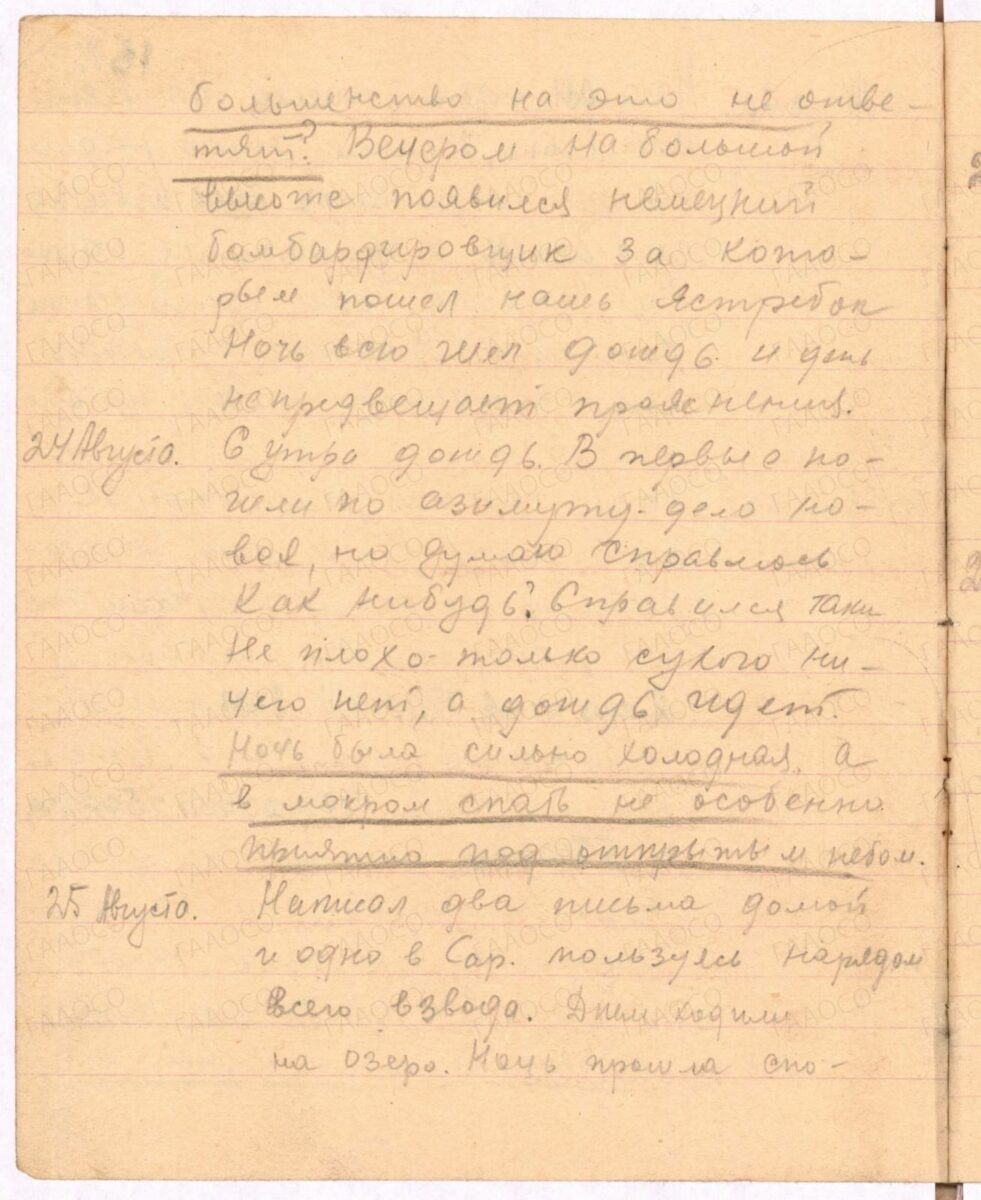 большенство на это не отве-
тят? Вечером на большой
высоте появился немецкий
бомбардировщик за кото-
рым пошел нашь ястребок
Ночь всю шел дождь и день
непредвещает прояснения.
24 Августа. С утра дождь. В первые по-
шли по азимуту - дело но-
вое, но думаю справлюсь
Как нибудь? Справился таки
Не плохо - только сухого ни-
чего нет, а дождь идет.
Ночь была сильно холодная, а
в мокром спать не особенно
приятно под открытым небом.
25 Августа. Написал два письма домой
и одно в Сар. пользуясь нарядом
всего взвода. Днем ходили
на озеро. Ночь прошла спо-